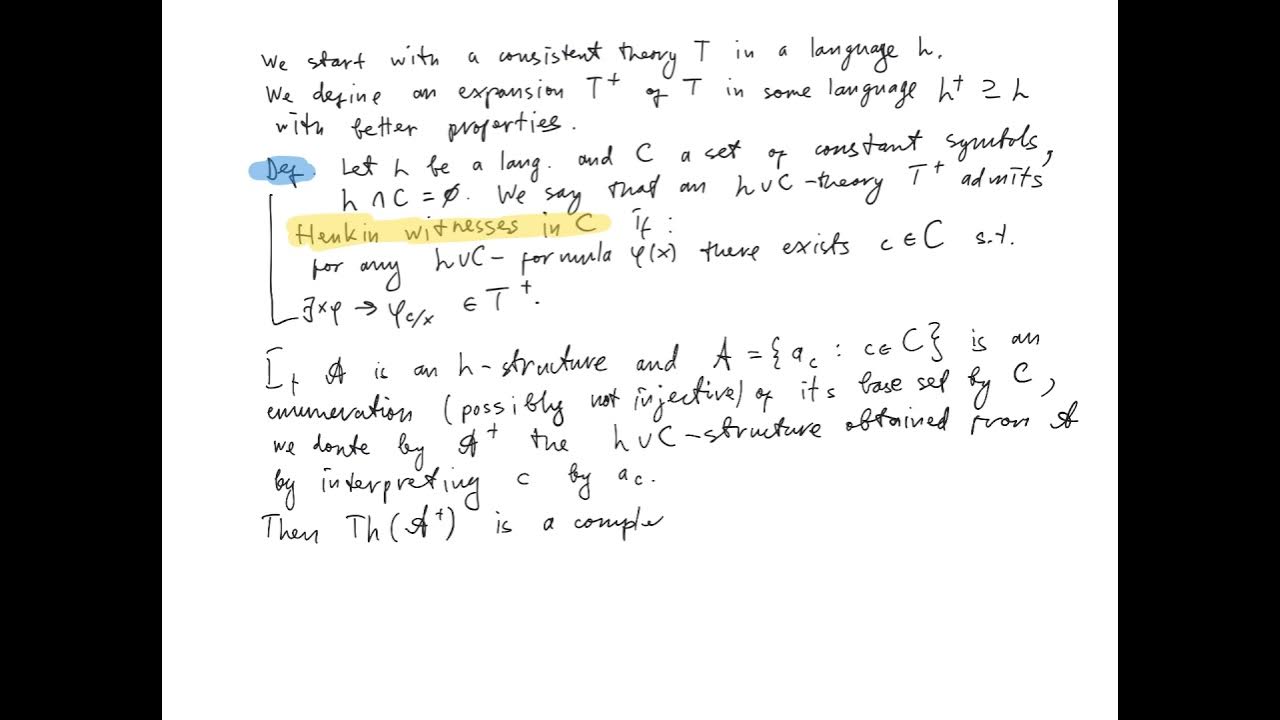 We start with a consistent theory T in a language h.
We define an expansion T⁺ of T in some language h⁺ ⊇ h
with better properties.
Def. Let h be a lang. and C a set of constant symbols,
h ∩ C = ∅. We say that an h∪C-theory T⁺ admits
Henkin witnesses in C if:
for any h∪C-formula φ(x) there exists c ∈ C s.t.
∃xφ → φ_{c/x} ∈ T⁺.
If 𝒜 is an h-structure and A = {a_c : c ∈ C} is an
enumeration (possibly not injective) of its base set by C,
we donte by 𝒜⁺ the h∪C-structure obtained from 𝒜
by interpreting c by a_c.
Then Th(𝒜⁺) is a comple